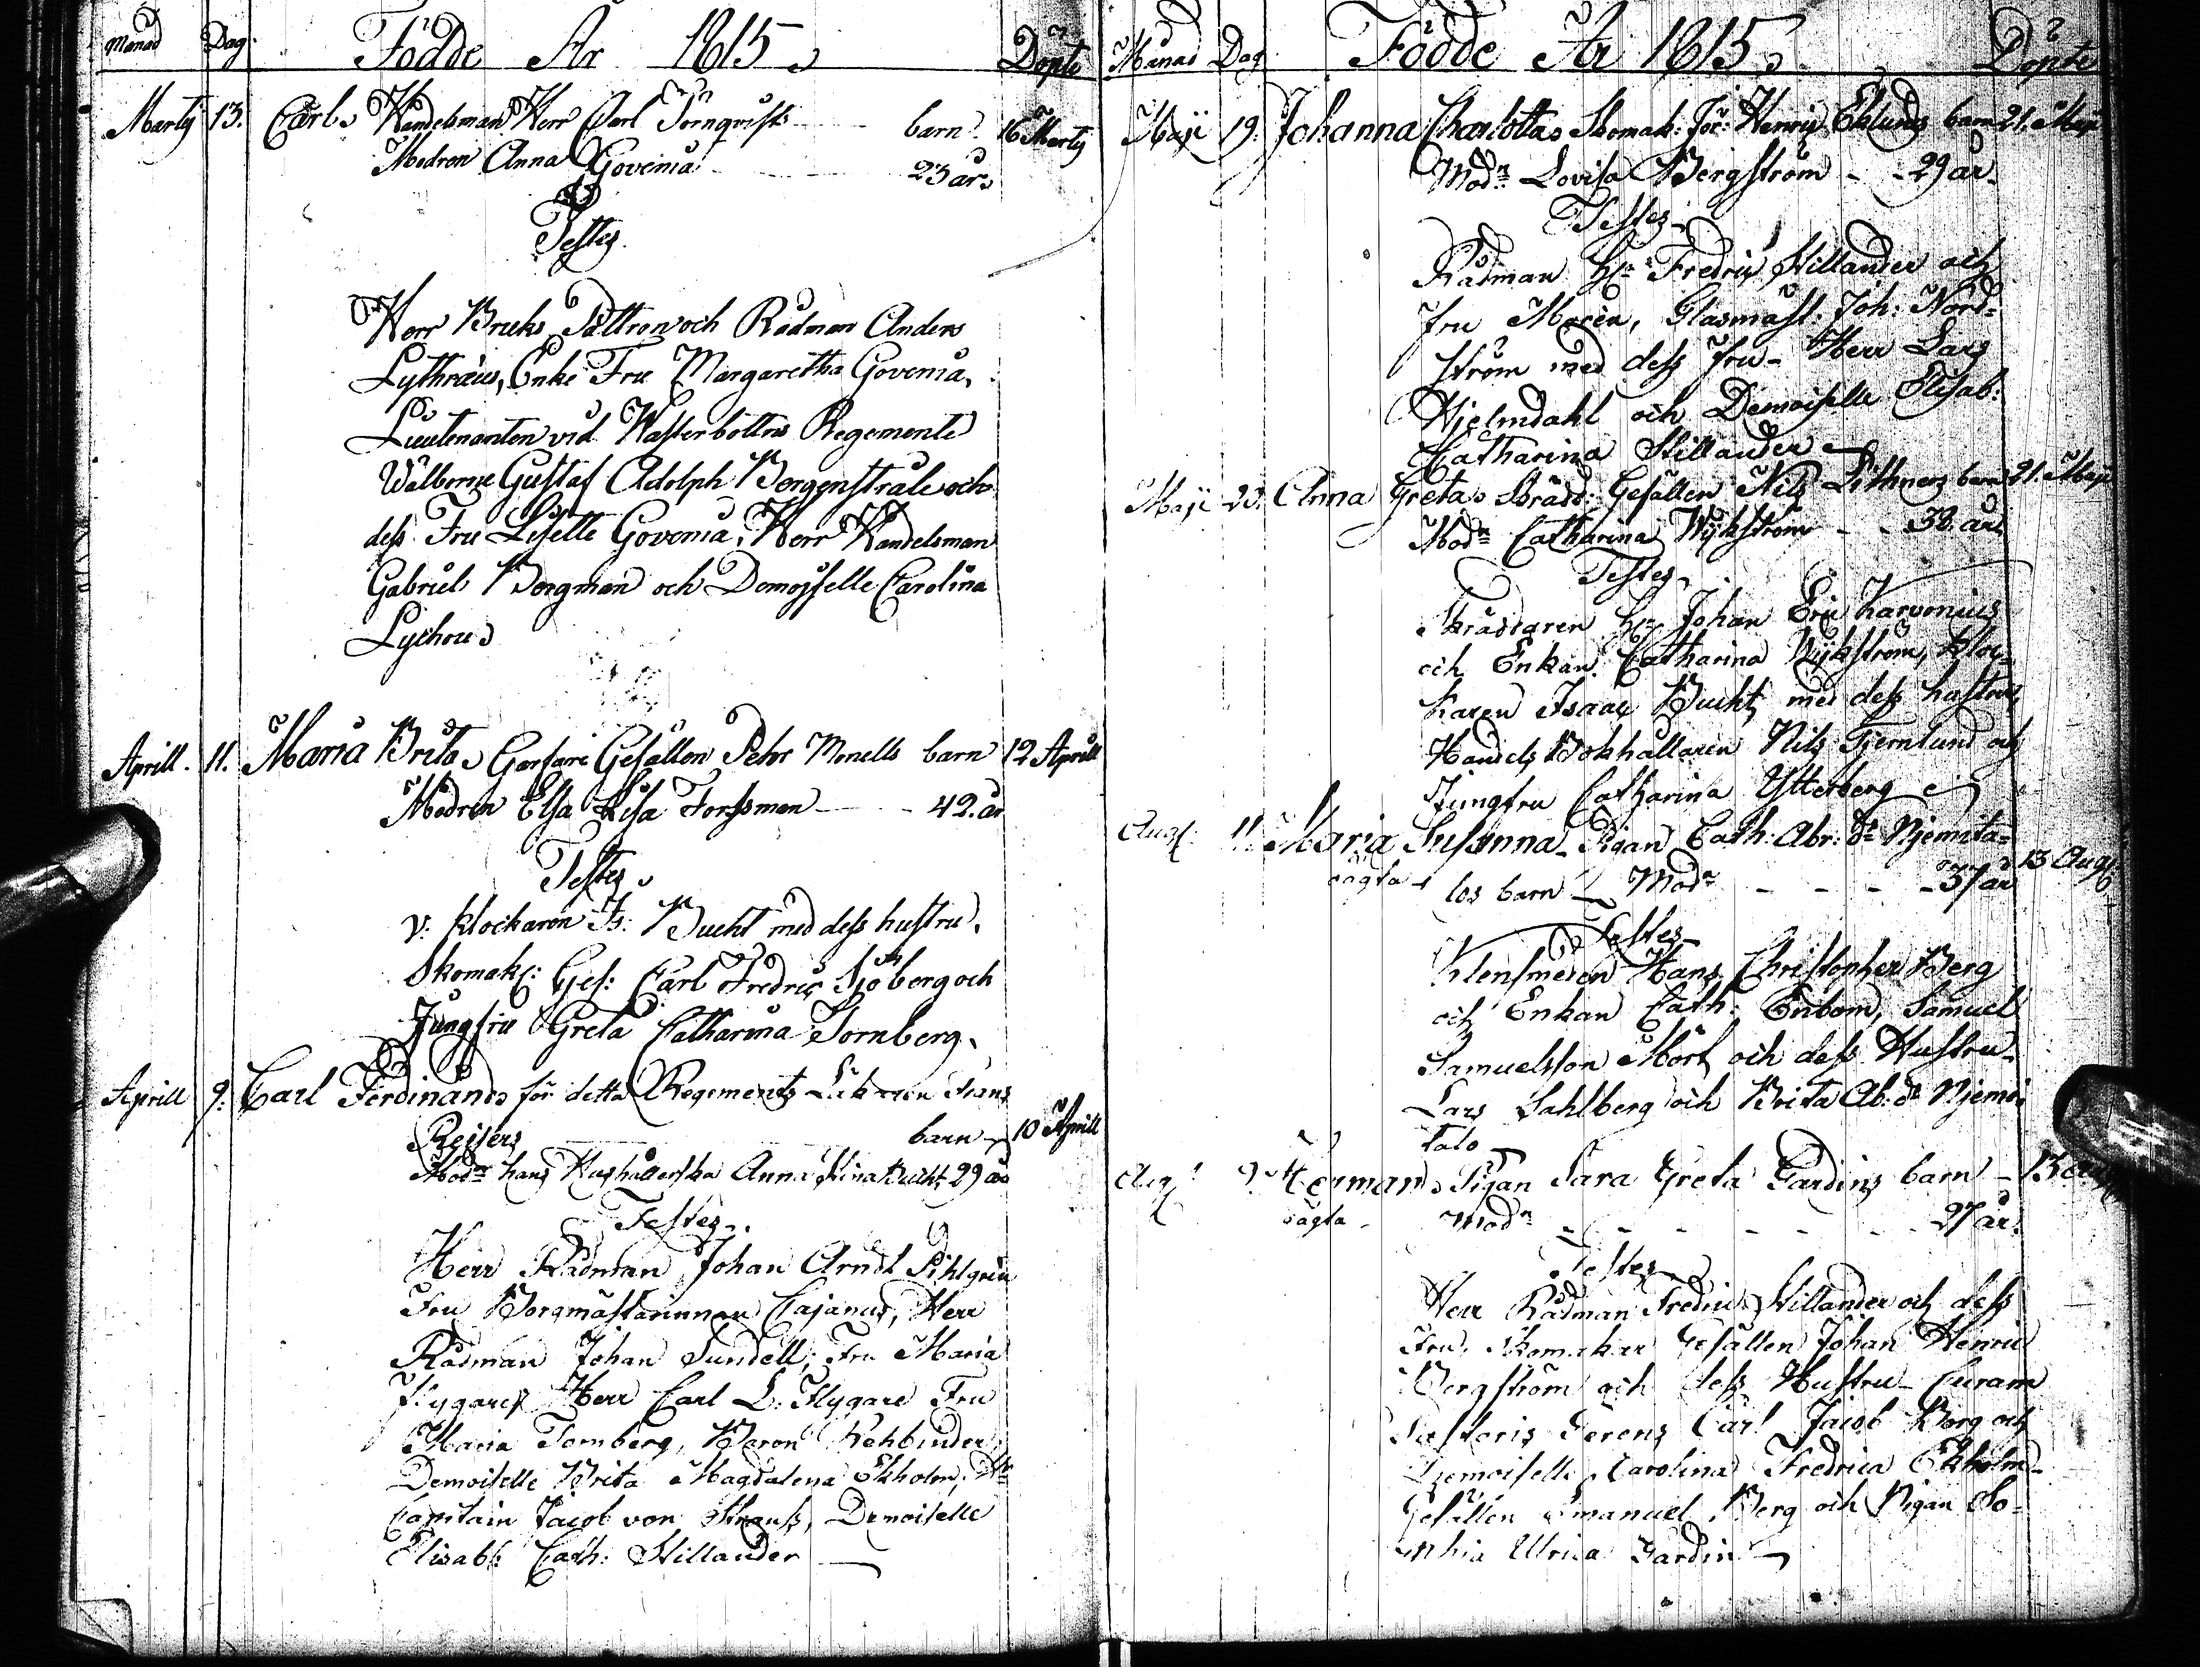 Månad Dag: Födde År 1815 Döpte
Martij 13. Carl, Handelsman Herr Carl Törnqvists barn 16 Martij
Modren Anna Govenia 23 år
Testes
Herr Bruks Pattron och Rådman Anders
Lythræus, Enke Fru Margaretha Govenia,
Lieutenanten vid Wasterbottns Regemente
Wälborne Gustaf Adolph Borgenstråle och
dess Fru Lisette Govenia, Herr Handelsman
Gabriel Borgman och Demoiselle Carolina
Lychou
Aprill 11. Maria Brita, Garfare Gesällen Pehr Monells barn 12 Aprill
Modren Elsa Lisa Forssman 42. år
Testes
v: klockaren Is: Bucht med dess hustru,
Skomak: Ges: Carl Fredric Sjöberg och
Jungfru Greta Catharina Tornberg.
Aprill 9. Carl Ferdinand, för detta Regements Läkaren Frans
Reisers barn 10 Aprill
Modn hans Hushållerska Anna Stina Bucht 29 år
Testes
Herr Rådman Johan Arndt Pihlgren
Fru Borgmästarinnan Cajanus, Herr
Rådman Johan Sundell, Fru Maria
Flygare, Herr Carl L: Flygare Fru
Maria Tornberg, Baron Rehbinder,
Demoiselle Brita Magdalena Ekholm, Hr
Capitain Jacob von Strauss, Demoiselle
Elisab: Cath: Stillander
Månad Dag Födde År 1815 Döpte
Maji 19. Johanna Charlotta, Skomak: Henric Eklunds barn 21. Maji
Modn Lovisa Bergström 29 år
Testes
Rådman Hr Fredric Stillander och
Fru Glasmäst: Joh: Nord-
ström med dess Fru Herr Lars
Hjelmdahl och Demoiselle Elisab:
Catharina Stillander
Maji 20. Anna Greta, Skrädd: Gesällen Nils Lithners barn 21. Maji
Modn Catharina Wijkström 38. år
Testes
Skräddaren Hr Johan Eric Karvonius
och Enkan Catharina Wijkström, Kloc-
karen Isaac Bucht med dess hustru,
Handels Bokhållaren Nils Tjernlund och
Jungfru Catharina Ytterberg
Aug: 11. Maria Susanna Pigan Cath: Abr: dr Njemita-
oägta los barn Modr 37 år 13 Aug:
Testes
Klensmeden Hans Christopher Berg
och Enkan Cath: Enbom, Samuel
Samuelsson Mört och dess Hustru
Lars Sahlberg och Brita Ab: dr Njemi
talo
Aug: 9. Herman, Pigan Sara Greta Gardins barn 13 Aug
oägta Modn 27 år.
Testes
Herr Rådman Fredric Stillander och dess
Fru, Skomakar Gesällen Johan Henric
Bergström och dess Hustru Curam
Pastoris Gerens Carl Jacob Borg och
Demoiselle Carolina Fredrica Ekholm
Gesällen Emanuel Berg och Pigan So-
phia Ulrica Gardin